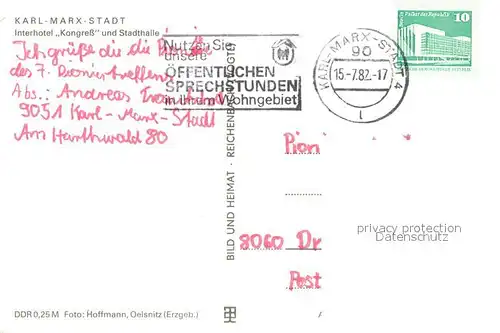 KARL-MARX-STADT
Interhotel „Kongreß" und Stadthalle
Ich grüße die
des 7. Pioniertreffens
Abs.: Andreas
9051 Karl-Marx-Stadt
Am Harthwald 80
Nutzen Sie
unsere
ÖFFENTLICHEN
SPRECHSTUNDEN
in Ihrem Wohngebiet
KARL-MARX-STADT 4
90
15.-7.82.-17
l
Palast der Republik
10
BILD UND HEIMAT · REICHENBACH
Pioni
8060 Dr
Post
privacy protection
Datenschutz
DDR 0,25 M Foto: Hoffmann, Oelsnitz (Erzgeb.)